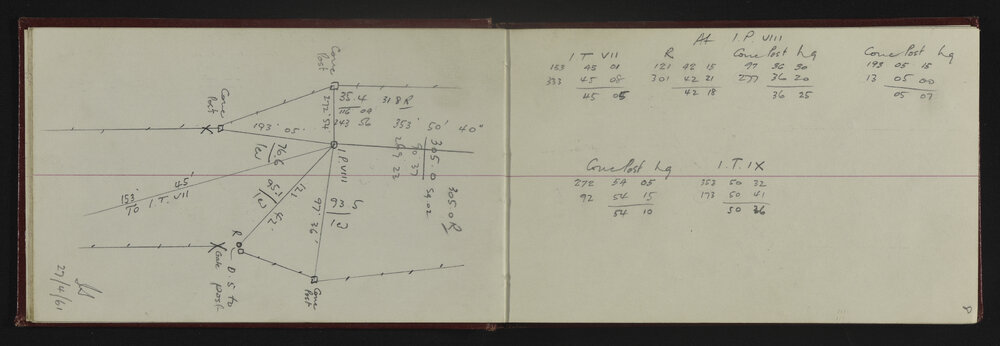 Conc
Post
Conc
Post
272° 54'
35.4
318 R
116 09
243 56
193° 05'
76.6
353° 50' 40"
305.0
90 37
269 23
54 02
305.0 R
I.P. VIII
45'
153°
TO I.T. VII
121° 42'
95.
97° 36'
93
R
O S to
Gate post
Conc
Post
27/4/61
At I.P. VIII
I T VII
153 45 01
333 45 08
45 05
R
121 42 15
301 42 21
42 18
Conc Post Lg
97 36 30
277 36 20
36 25
Conc Post Lg
193 05 15
13 05 00
05 07
Conc Post Lg
272 54 05
92 54 15
54 10
I.T. IX
353 50 32
173 50 41
50 36
8